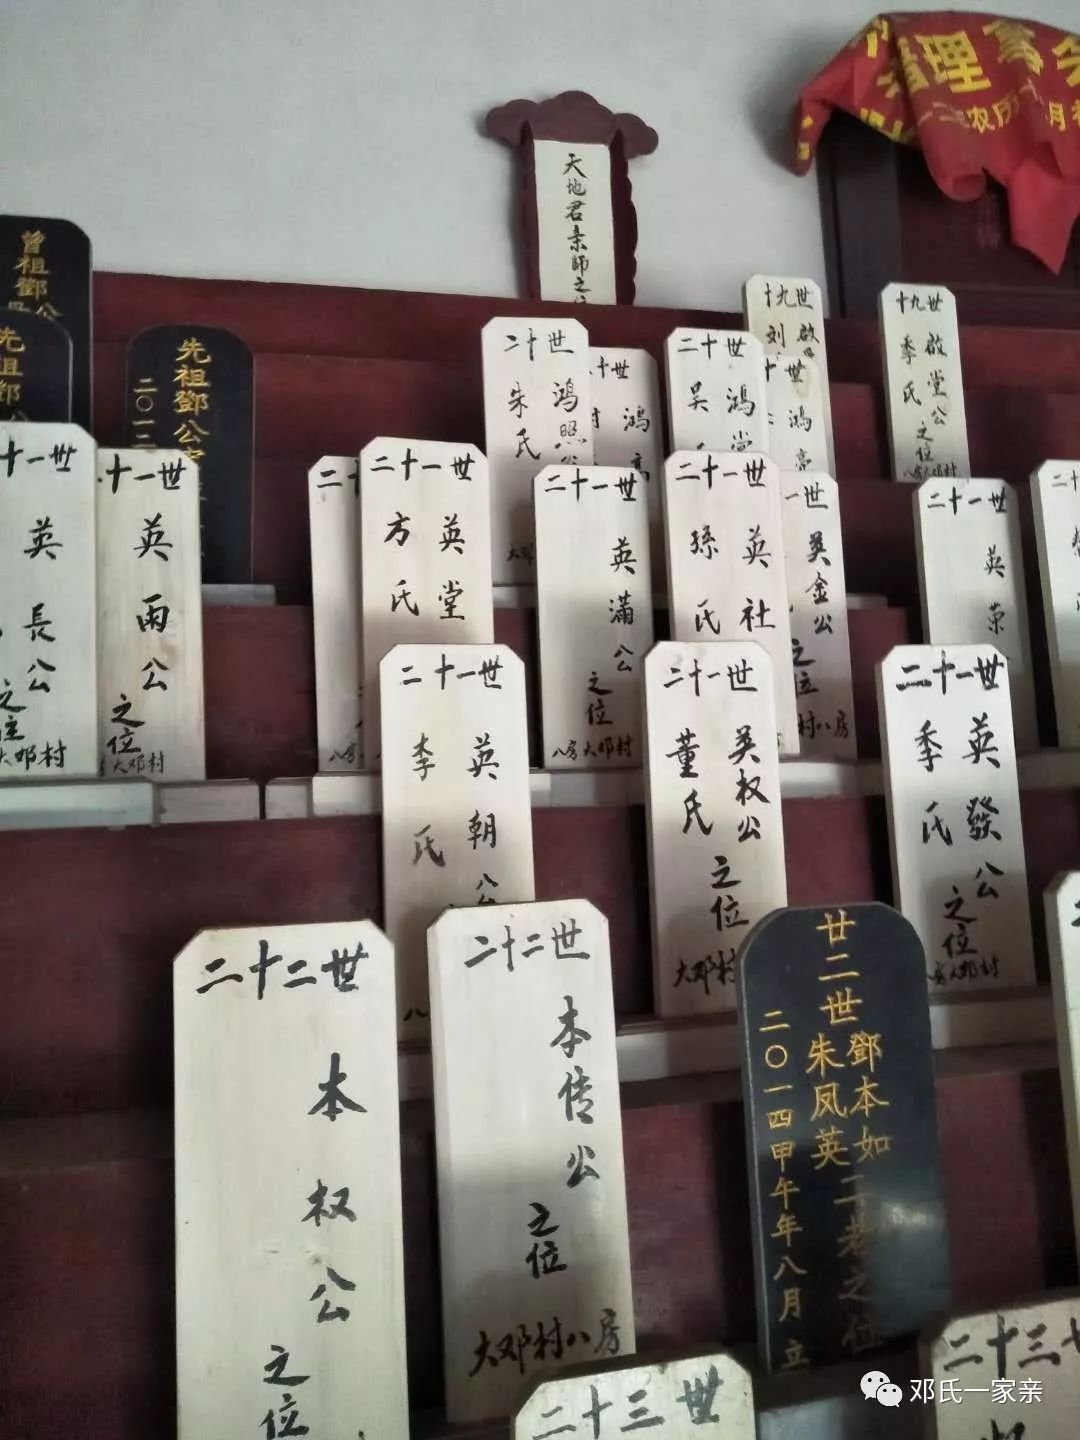 理
农历
月
天地君亲師之位
曾祖鄧公
先祖鄧公
二〇一二
十九世
刘
啟
十九世
啟堂公
季氏
之位
八房大邓村
二十世
鸿照公
朱氏
十世
鸿
二十世
鸿堂
吴
十世
鸿亮
十一世
英長公
之位
大邓村
十一世
英雨公
之位
大邓村
二十一世
英堂
方氏
二十一世
英满公
之位
八房大邓村
二十一世
英社
孫氏
一世
英金公
之位
村八房
二十一世
英荣
二十一世
英朝公
李氏
二十一世
英权公
董氏
之位
大邓村
二十一世
英發公
季氏
之位
二十二世
本权公
之位
二十二世
本传公
之位
大邓村八房
廿二世
鄧本如
朱凤英
二老之位
二〇一四甲午年八月立
二十三世
二十三
邓氏一家亲